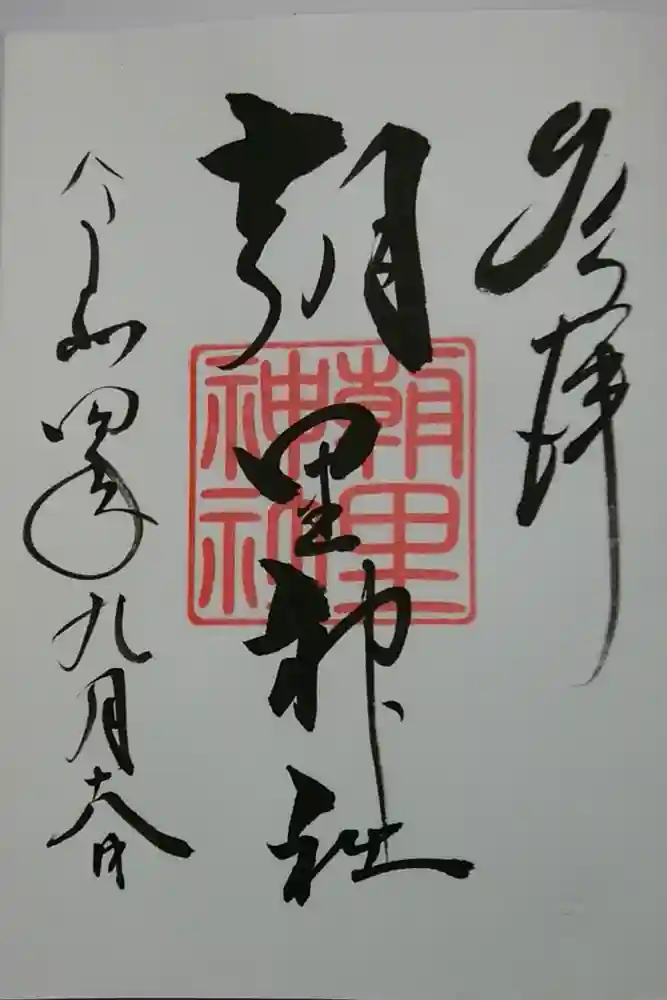 参拝
朝里神社
朝里
神社
令和四年九月十八日